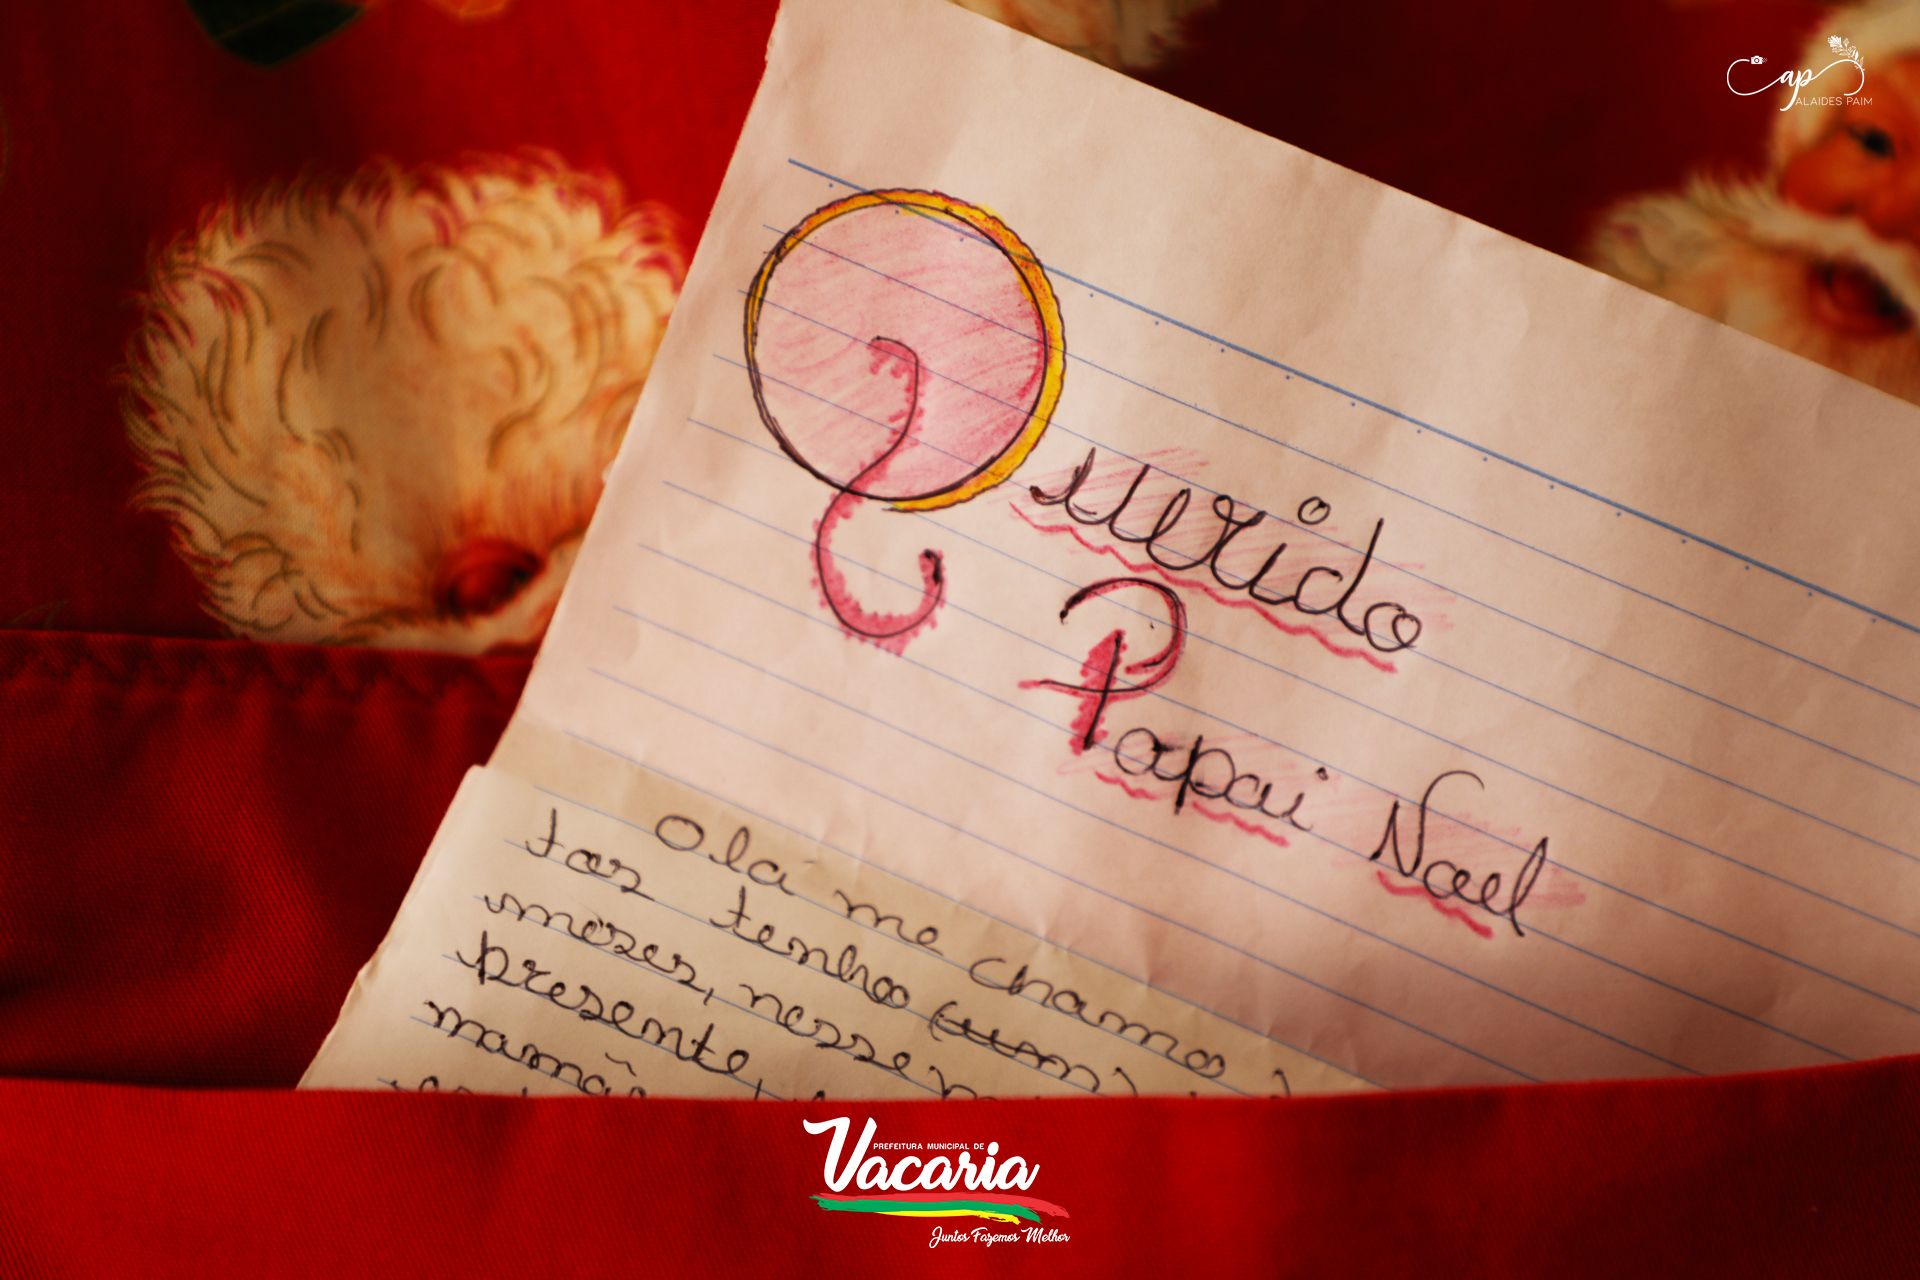 ap
ALAIDES PAIM
Querido
Papai Nael
Olá me chamo
tenho (um)
mezes, nesse
presente,
mamãe
PREFEITURA MUNICIPAL DE
Vacaria
Juntos Fazemos Melhor